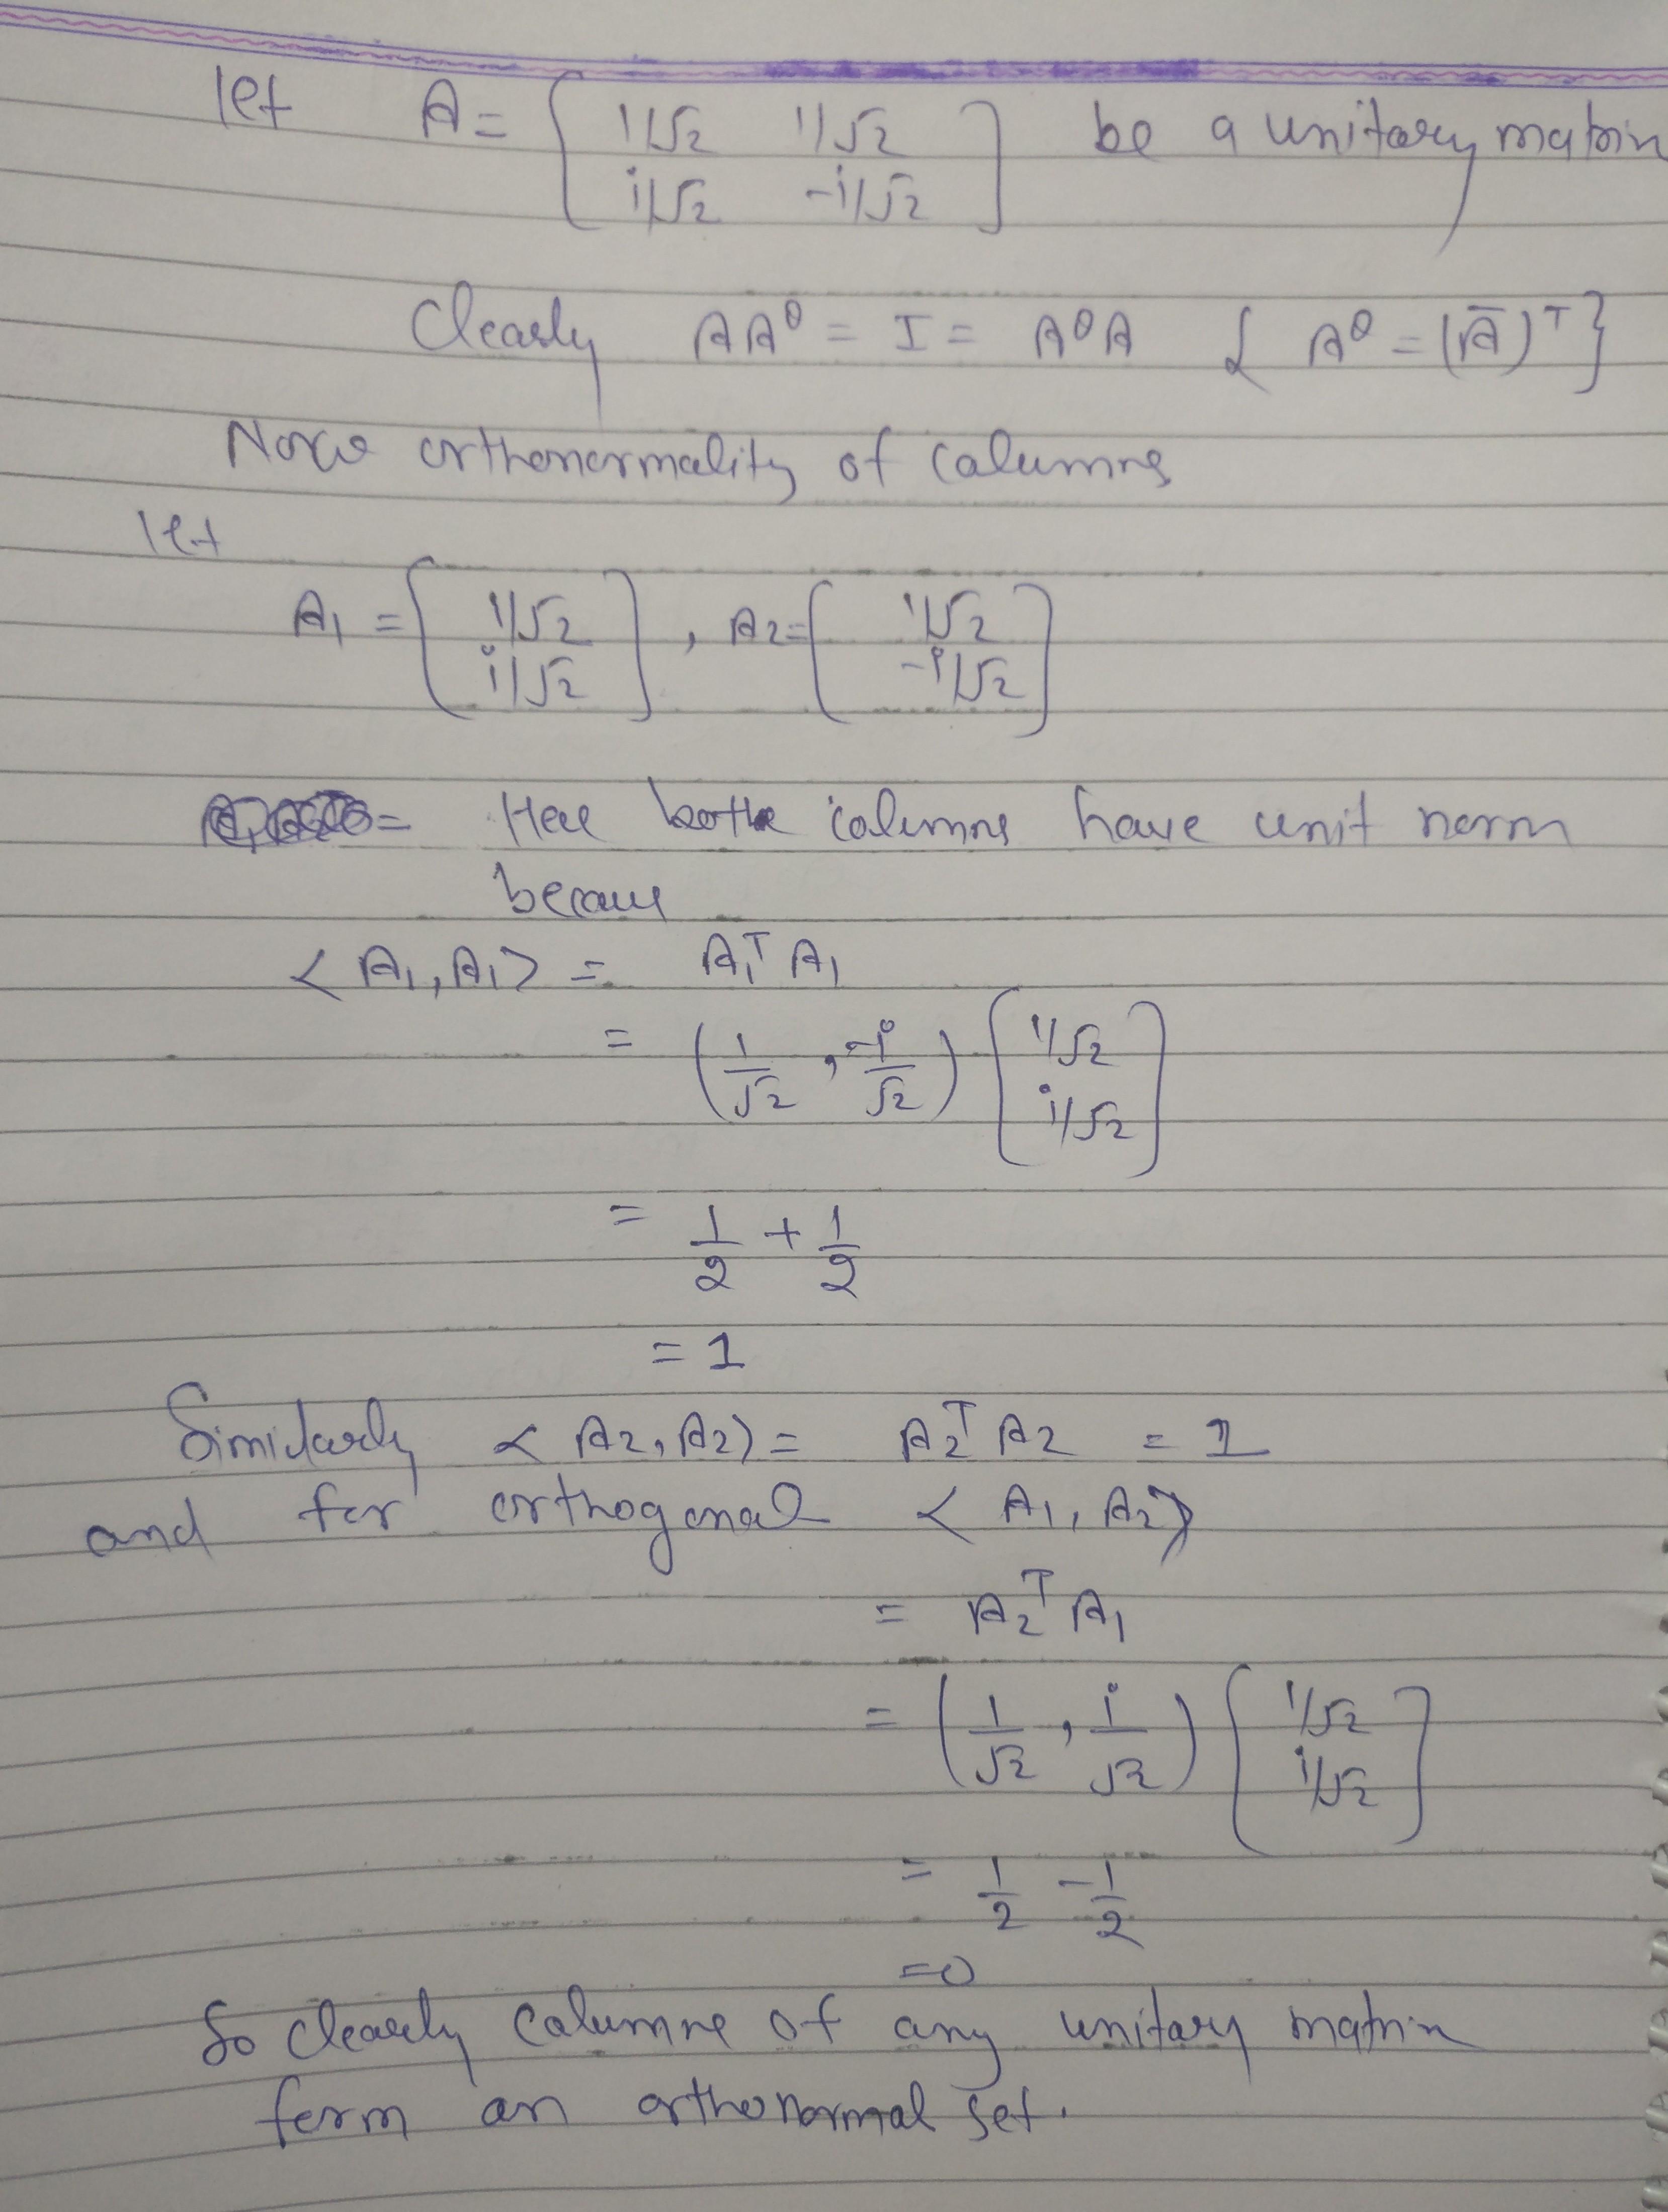 let A = [ 1/√2 1/√2 ] be a unitary matrix
[ i/√2 -i/√2 ]
Clearly AA^θ = I = A^θA { A^θ = (Ā)^T }
Now orthonormality of columns
let
A₁ = [ 1/√2 ] , A₂ = [ 1/√2 ]
[ i/√2 ] [ -i/√2 ]
= Here both columns have unit norm
becaus
< A₁, A₁ > = A₁^T A₁
= ( 1/√2 , -i/√2 ) [ 1/√2 ]
[ i/√2 ]
= 1/2 + 1/2
= 1
Similarly < A₂, A₂ > = A₂^T A₂ = 1
and for orthogonal < A₁, A₂ >
= A₂^T A₁
= ( 1/√2 , i/√2 ) [ 1/√2 ]
[ i/√2 ]
= 1/2 - 1/2
= 0
So clearly columns of any unitary matrix
form an orthonormal set.